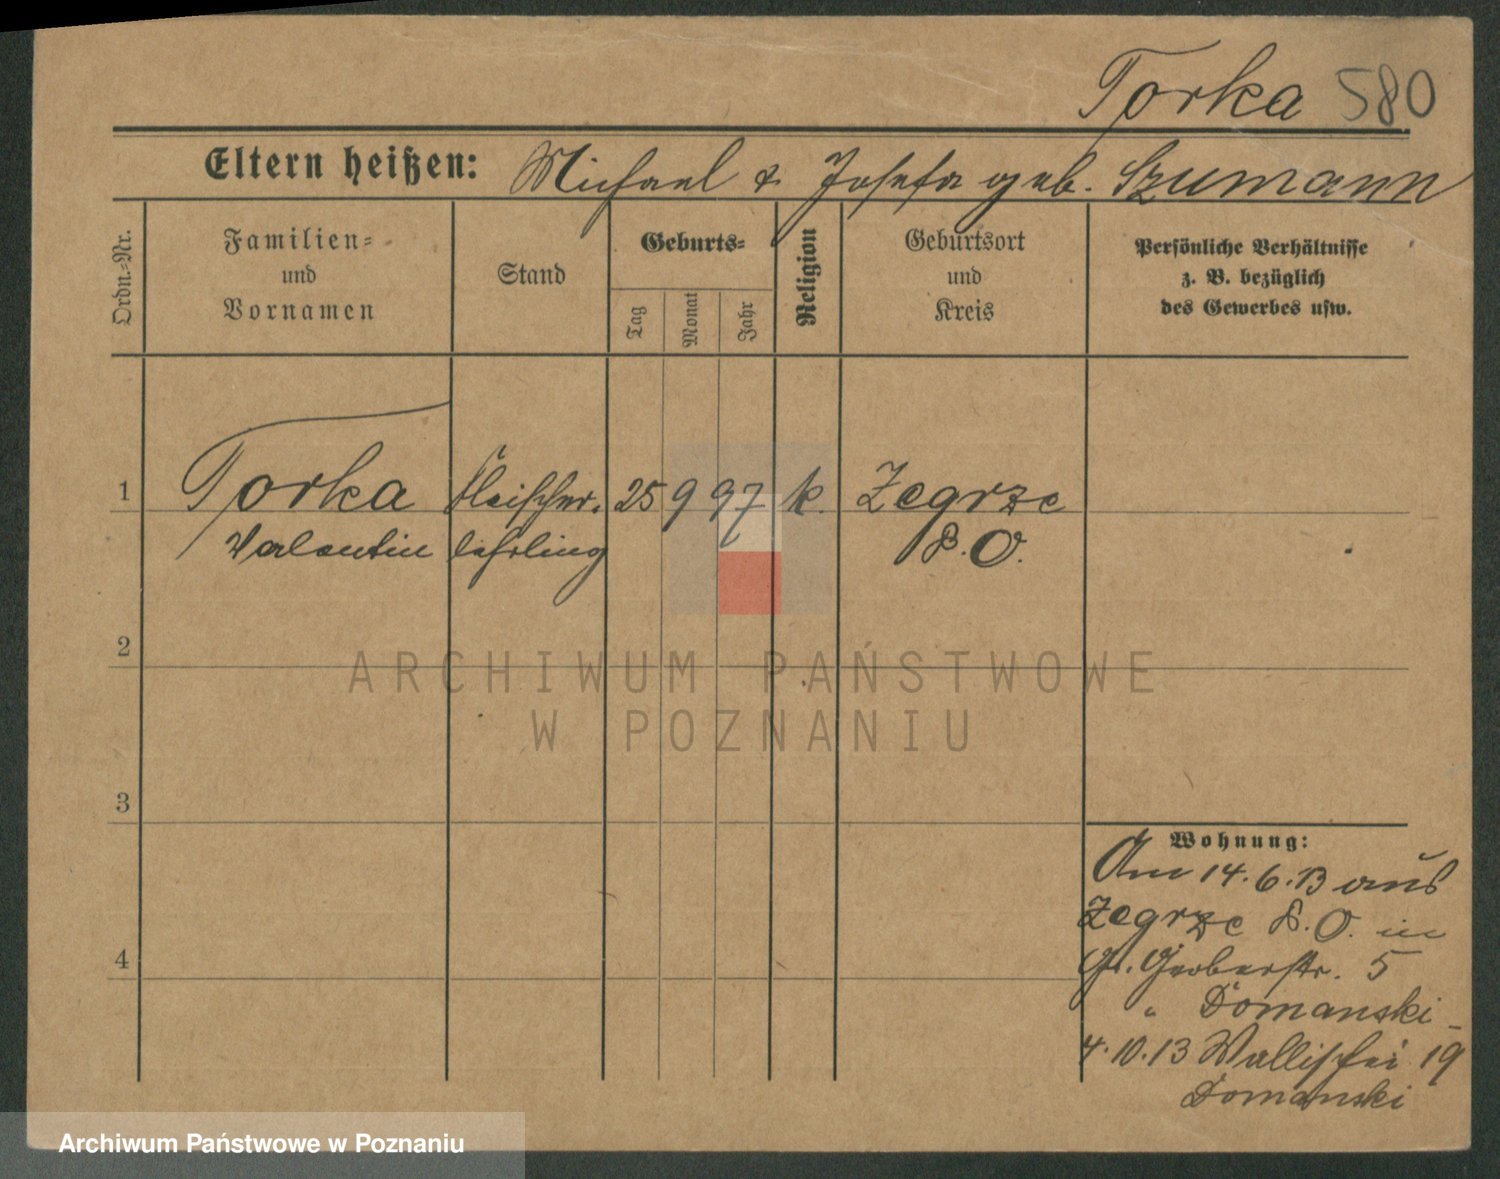 Torka 580
Eltern heißen: Michael & Josefa geb. Szumann
Ordn.-Nr.
Familien-
und
Vornamen
Stand
Geburts-
Tag
Monat
Jahr
Religion
Geburtsort
und
Kreis
Persönliche Verhältnisse
z. B. bezüglich
des Gewerbes usw.
1 Torka Fleischer- 25 9 97 k. Zegrze
Valentin lehrling P. O.
2
3
4
Wohnung:
Am 14.6.13 aus
Zegrze P. O. in
Gr. Gerberstr. 5
" Domanski -
4.10.13 Wallischei 19
Domanski
ARCHIWUM PAŃSTWOWE
W POZNANIU
Archiwum Państwowe w Poznaniu